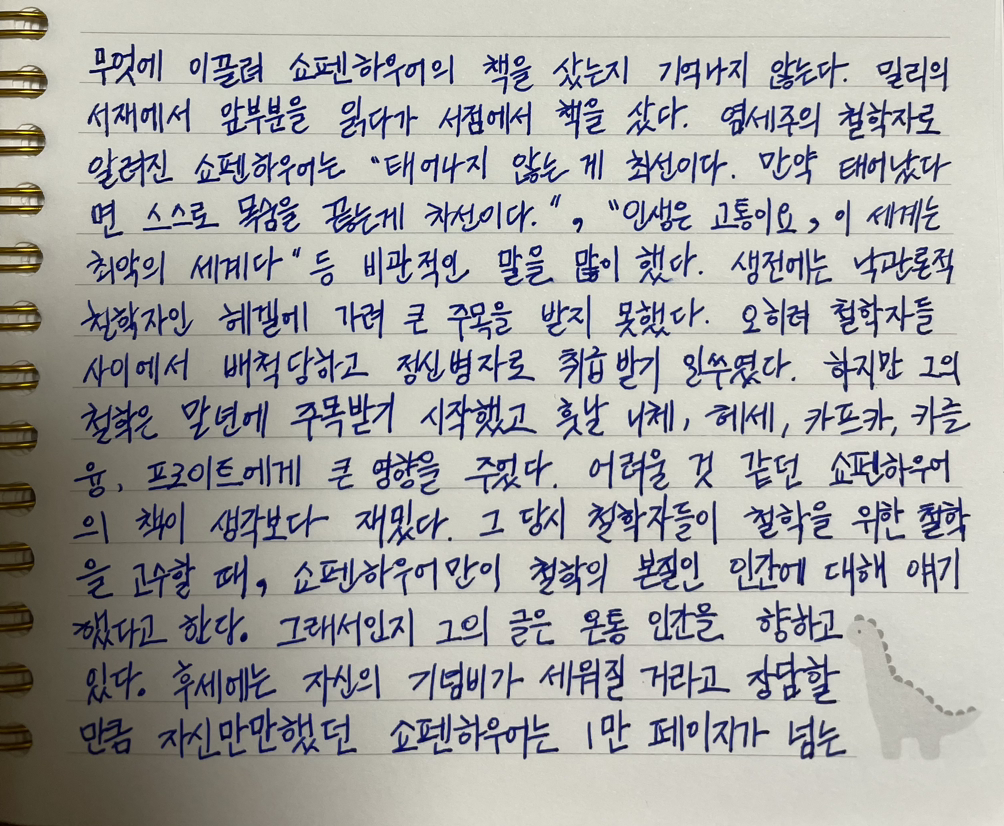 무엇에 이끌려 쇼펜하우어의 책을 샀는지 기억나지 않는다. 밀리의
서재에서 앞부분을 읽다가 서점에서 책을 샀다. 염세주의 철학자로
알려진 쇼펜하우어는 "태어나지 않는 게 최선이다. 만약 태어났다
면 스스로 목숨을 끊는게 차선이다.", "인생은 고통이요, 이 세계는
최악의 세계다" 등 비관적인 말을 많이 했다. 생전에는 낙관론적
철학자인 헤겔에 가려 큰 주목을 받지 못했다. 오히려 철학자들
사이에서 배척당하고 정신병자로 취급받기 일쑤였다. 하지만 그의
철학은 말년에 주목받기 시작했고 훗날 니체, 헤세, 카프카, 카를
융, 프로이트에게 큰 영향을 주었다. 어려울 것 같던 쇼펜하우어
의 책이 생각보다 재밌다. 그 당시 철학자들이 철학을 위한 철학
을 고수할 때, 쇼펜하우어만이 철학의 본질인 인간에 대해 얘기
했다고 한다. 그래서인지 그의 글은 온통 인간을 향하고
있다. 후세에는 자신의 기념비가 세워질 거라고 장담할
만큼 자신만만했던 쇼펜하우어는 1만 페이지가 넘는